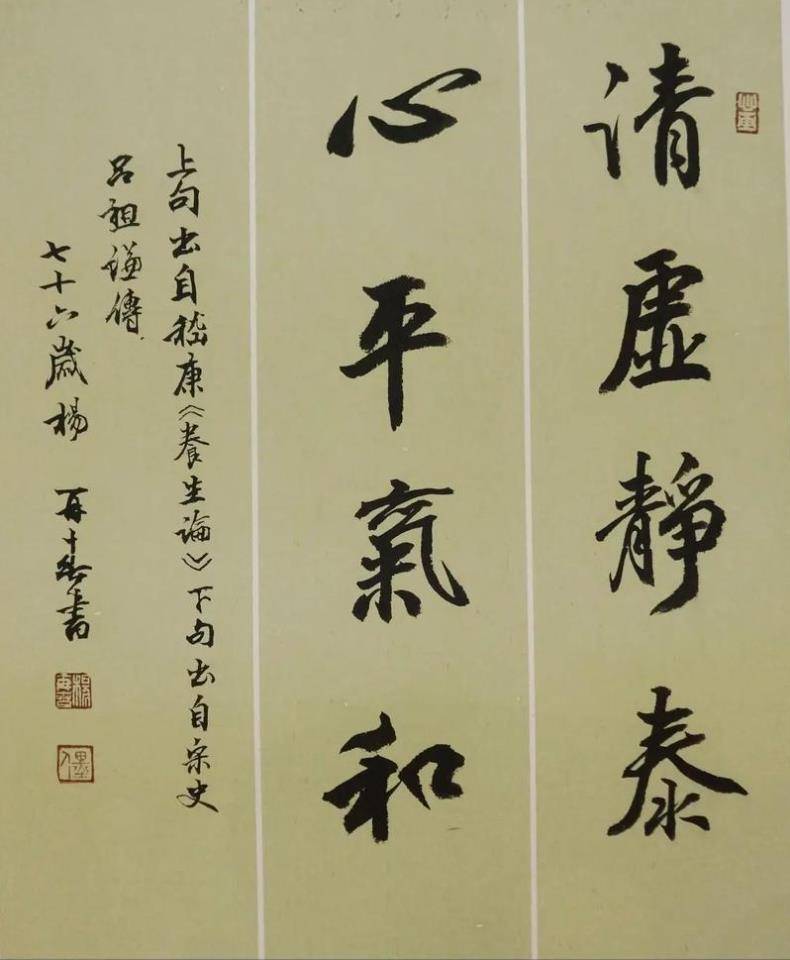 清虛靜泰
心平氣和
上句出自嵇康《養生論》下句出自宋史
呂祖謙傳
七十六歲楊再春書